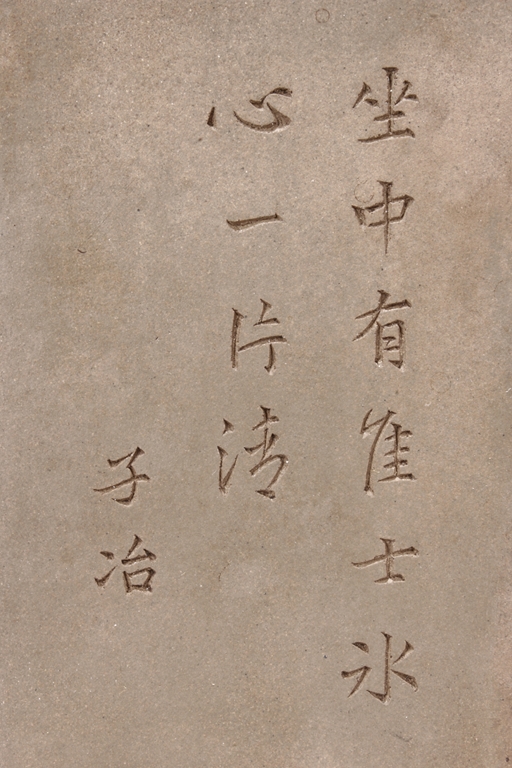 坐中有佳士氷
心一片清
子冶